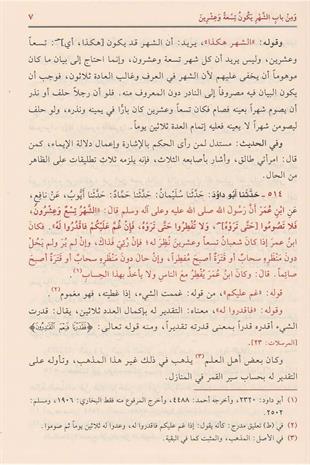 ٧ وَمِنْ بابِ الشَّهْرِ يَكُونُ تِسْعَةً وَعِشْرِينَ
وقوله: «الشهر هكذا»، يريد: أن الشهر قد يكون [هكذا، أي]: تسعاً
وعشرين، وليس يريد أن كل شهر تسعة وعشرون، وإنما احتاج إلى بيان ما كان
موهوماً أن يخفى عليهم لأن الشهر في العرف وغالب العادة ثلاثون، فوجب أن
يكون البيان فيه مصروفاً إلى النادر دون المعروف منه. فلو أن رجلاً حلف أو نذر
أن يصوم شهراً بعينه فصام فكان تسعاً وعشرين كان بارًّا في يمينه ونذره، ولو حلف
ليصومن شهراً لا بعينه فعليه إتمام العدة ثلاثين يوماً.
وفي الحديث: مستدل لمن رأى الحكم بالإشارة وإعمال دلالة الإيماء، كمن
قال: امرأتي طالق، وأشار بأصابعه الثلاث، فإنه يلزمه ثلاث تطليقات على الظاهر
من الحال.
٥١٤ ـ حَدَّثَنا أبو داوُدَ: حَدَّثَنا سُلَيْمانُ: حَدَّثَنا حَمَّادٌ: حَدَّثَنا أيُّوبُ، عَنْ نافِعٍ،
عَنِ ابْنِ عُمَرَ أنَّ رَسولَ اللهِ صلى الله عليه وعلى آله وسلم قالَ: «الشَّهْرُ تِسْعٌ وَعِشْرُونَ،
فَلا تَصُومُوا حَتَّى تَرَوْهُ، وَلا تُفْطِرُوا حَتَّى تَرَوْهُ، فَإِنْ غُمَّ عَلَيْكُمْ فَاقْدُرُوا لَهُ». فَكَانَ
ابنُ عمرَ إذا كان شعبانُ تسعاً وعشرين نُظِرَ له؛ فإنْ رُئِيَ فَذَاكَ، وإنْ لم يُرَ ولم يَحُلْ
دونَ مَنْظَرِهِ سحابٌ أو قَتَرَةٌ أصبحَ مُفطِراً، وإنْ حالَ دونَ مَنْظَرِهِ سحابٌ أو قَتَرَةٌ أصبحَ
صائِماً. قالَ: وكانَ ابنُ عُمَرَ يُفْطِرُ مَعَ الناسِ ولا يأخُذُ بهذا الحِسابِ(١).
قوله: «غم عليكم»، من قولك: غممت الشيء، إذا غطيته، فهو مغموم(٢).
قوله: «فاقدروا له»، معناه: التقدير له بإكمال العدد ثلاثين، يقال: قدرت
الشيء أقدره قدراً بمعنى قدرته تقديراً، ومنه قوله تعالى: ﴿فَقَدَرْنَا فَنِعْمَ الْقَادِرُونَ﴾
[المرسلات: ٢٣].
وكان بعض أهل العلم(٣) يذهب في ذلك غير هذا المذهب، وتأوله على
التقدير له بحساب سير القمر في المنازل.
(١) أبو داود: ٢٣٢٠، وأخرجه أحمد: ٤٤٨٨، وأخرج المرفوع منه فقط البخاري: ١٩٠٦، ومسلم:
٢٥٠٢.
(٢) في (ط) تعليق مدرج: كأنه يقول: إذا غم عليكم فاقدروا له، وعدوا له ثلاثين يوماً ثم صوموا.
(٣) في الأصل: المذهب، والمثبت كما في البقية.